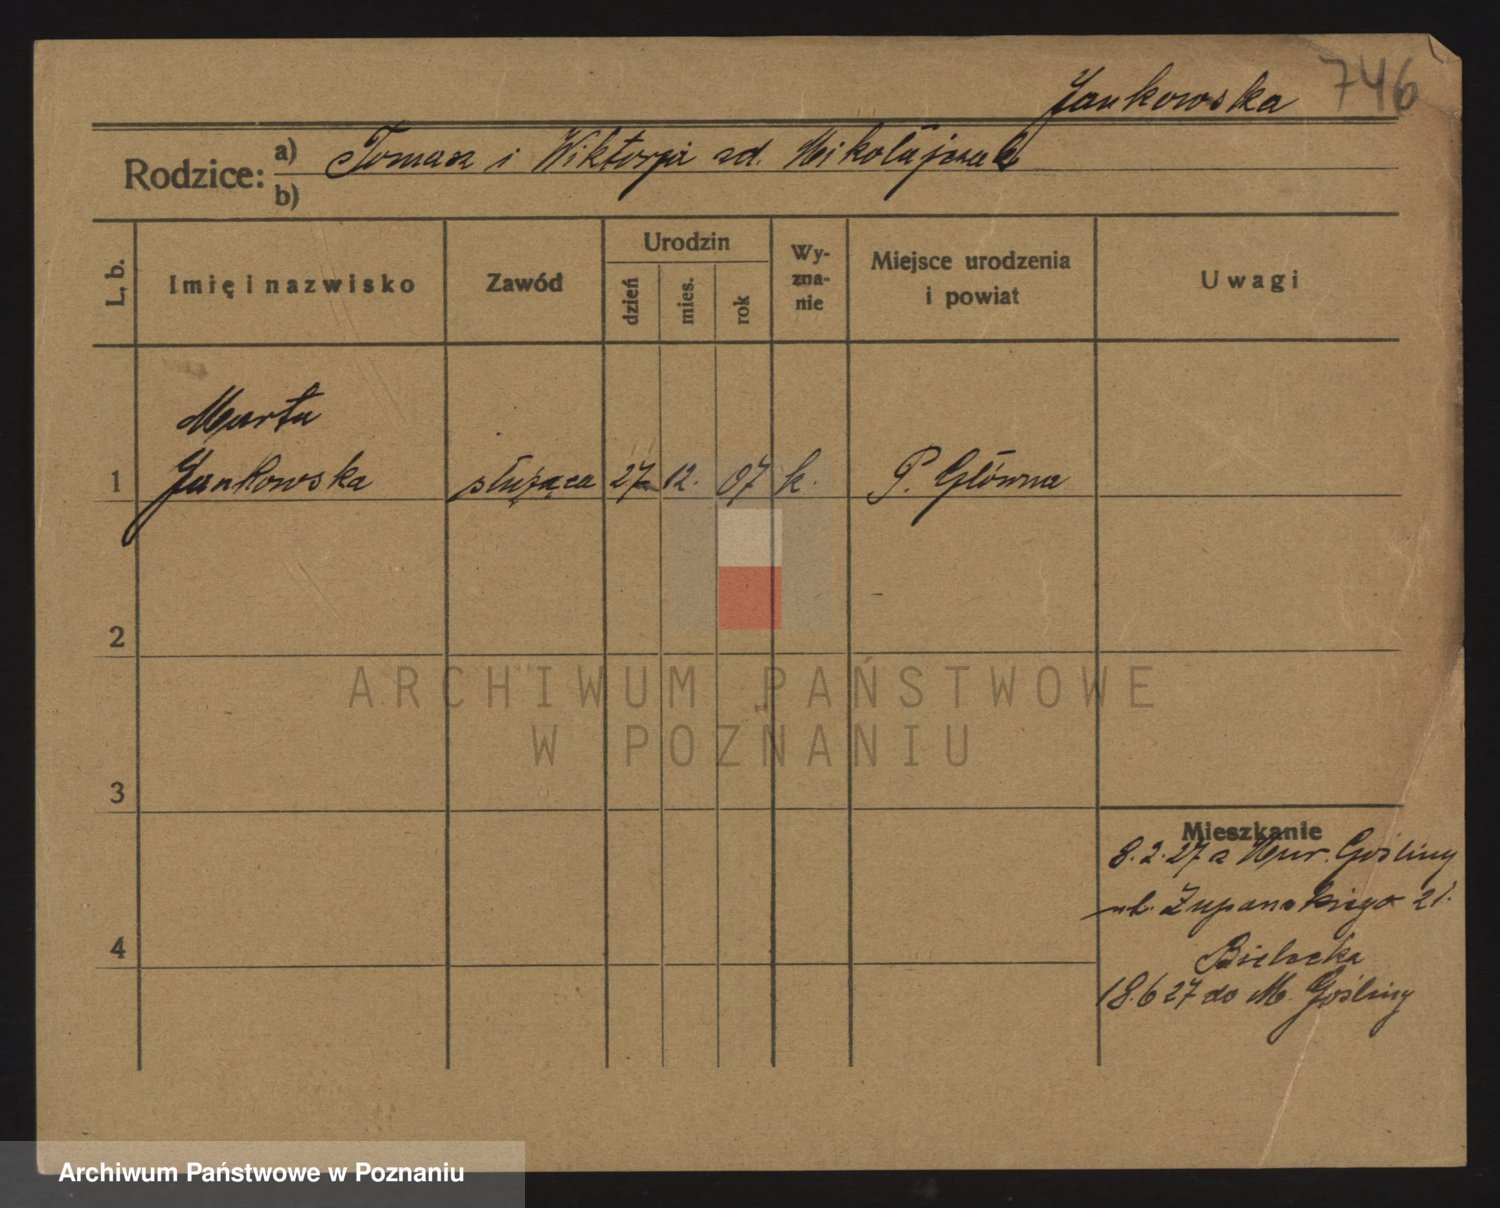 Jankowska 746
Rodzice: a) Tomasz i Wiktorja zd. Mikołajczak
b)
L. b. Imię i nazwisko Zawód Urodzin dzień mies. rok Wy-zna-nie Miejsce urodzenia i powiat Uwagi
Marta
1 Jankowska służąca 27. 12. 07 k. P. Główna
2
ARCHIWUM PAŃSTWOWE
W POZNANIU
3
Mieszkanie
8.2.27 z Mur. Gośliny
ul. Żupańskiego 21.
4
Bielacka
18.6 27 do M. Gośliny
Archiwum Państwowe w Poznaniu